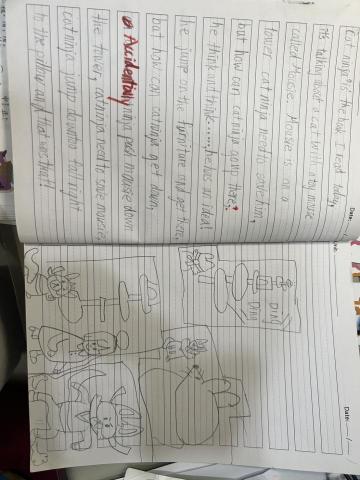 Cat ninja is the book I read today,
it's talking about a cat with a toy mouse
called Mousie. Mousie is on a
tower cat ninja need to save him,
but how can catninja going there?
he think and think...... he has an idea!
he jump on the furniture and get there,
but how can catninja get down
Accidentally ninja push mousie down
the tower, catninja need to save mousie,
catninja jump down to fall right
to the pillow and that was small!
Date:
DING
DING
Date: